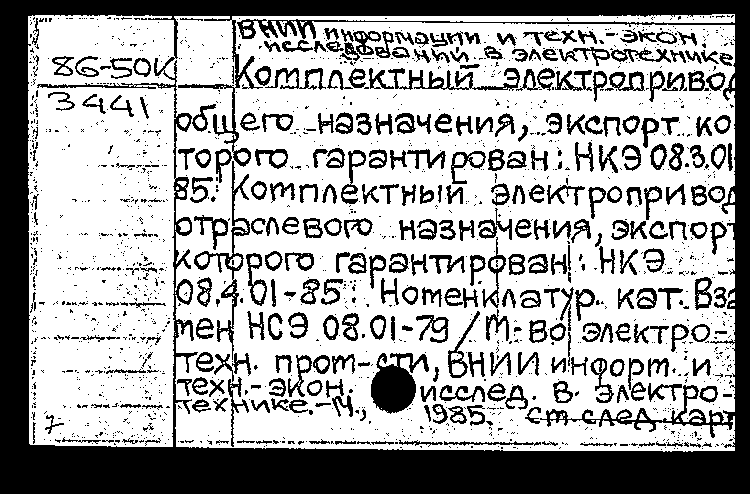 ВНИИ информации и техн.-экон
исследований в электротехнике
86-50К
Комплектный электропривод
3441
общего назначения, экспорт ко
торого гарантирован: НКЭ 08.3.01
85. Комплектный электропривод
отраслевого назначения, экспорт
которого гарантирован: НКЭ
08.4.01-85. Номенклатур. кат. Вза
мен НСЭ 08.01-79 / М-во электро-
техн. пром-сти, ВНИИ информ. и
техн.-экон. исслед. в электро-
технике.-М., 1985. ст след карт
7